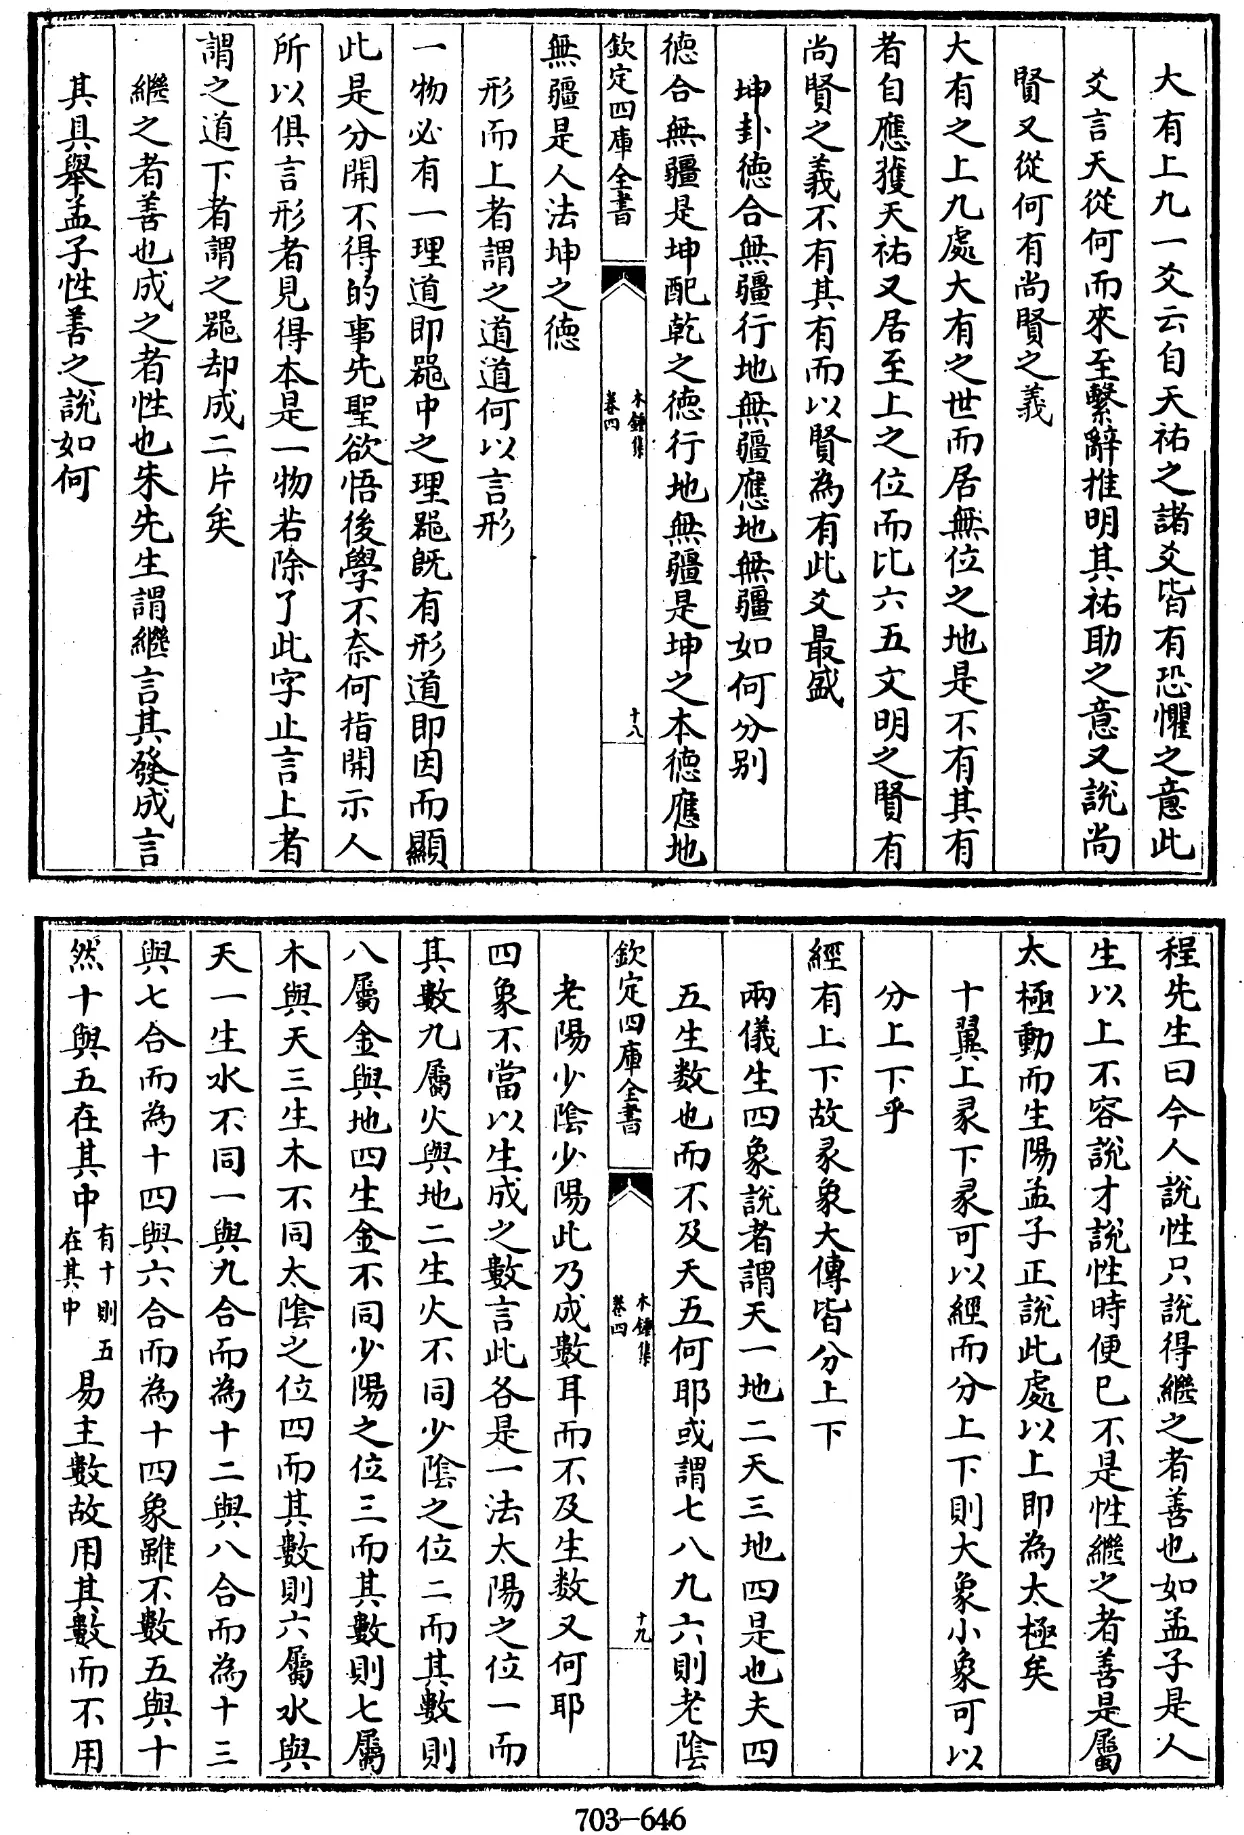 大有上九一爻云自天祐之諸爻皆有恐懼之意此
爻言天從何而來至繫辭推明其祐助之意又說尚
賢又從何有尚賢之義
大有之上九處大有之世而居無位之地是不有其有
者自應獲天祐又居至上之位而比六五文明之賢有
尚賢之義不有其有而以賢為有此爻最盛
坤卦德合無疆行地無疆應地無疆如何分别
德合無疆是坤配乾之德行地無疆是坤之本德應地
欽定四庫全書
木鍾集
卷四
十八
無疆是人法坤之德
形而上者謂之道道何以言形
一物必有一理道即器中之理器既有形道即因而顯
此是分開不得的事先聖欲悟後學不奈何指開示人
所以俱言形者見得本是一物若除了此字止言上者
謂之道下者謂之器却成二片矣
繼之者善也成之者性也朱先生謂繼言其發成言
其具舉孟子性善之說如何
程先生曰今人說性只說得繼之者善也如孟子是人
生以上不容說才說性時便已不是性繼之者善是屬
太極動而生陽孟子正說此處以上即為太極矣
十翼上彖下彖可以經而分上下則大象小象可以
分上下乎
經有上下故彖象大傳皆分上下
兩儀生四象說者謂天一地二天三地四是也夫四
五生數也而不及天五何耶或謂七八九六則老陰
欽定四庫全書
木鍾集
卷四
十九
老陽少陰少陽此乃成數耳而不及生數又何耶
四象不當以生成之數言此各是一法太陽之位一而
其數九屬火與地二生火不同少陰之位二而其數則
八屬金與地四生金不同少陽之位三而其數則七屬
木與天三生木不同太陰之位四而其數則六屬水與
天一生水不同一與九合而為十二與八合而為十三
與七合而為十四與六合而為十四象雖不數五與十
然十與五在其中有十則五在其中易主數故用其數而不用
703-646